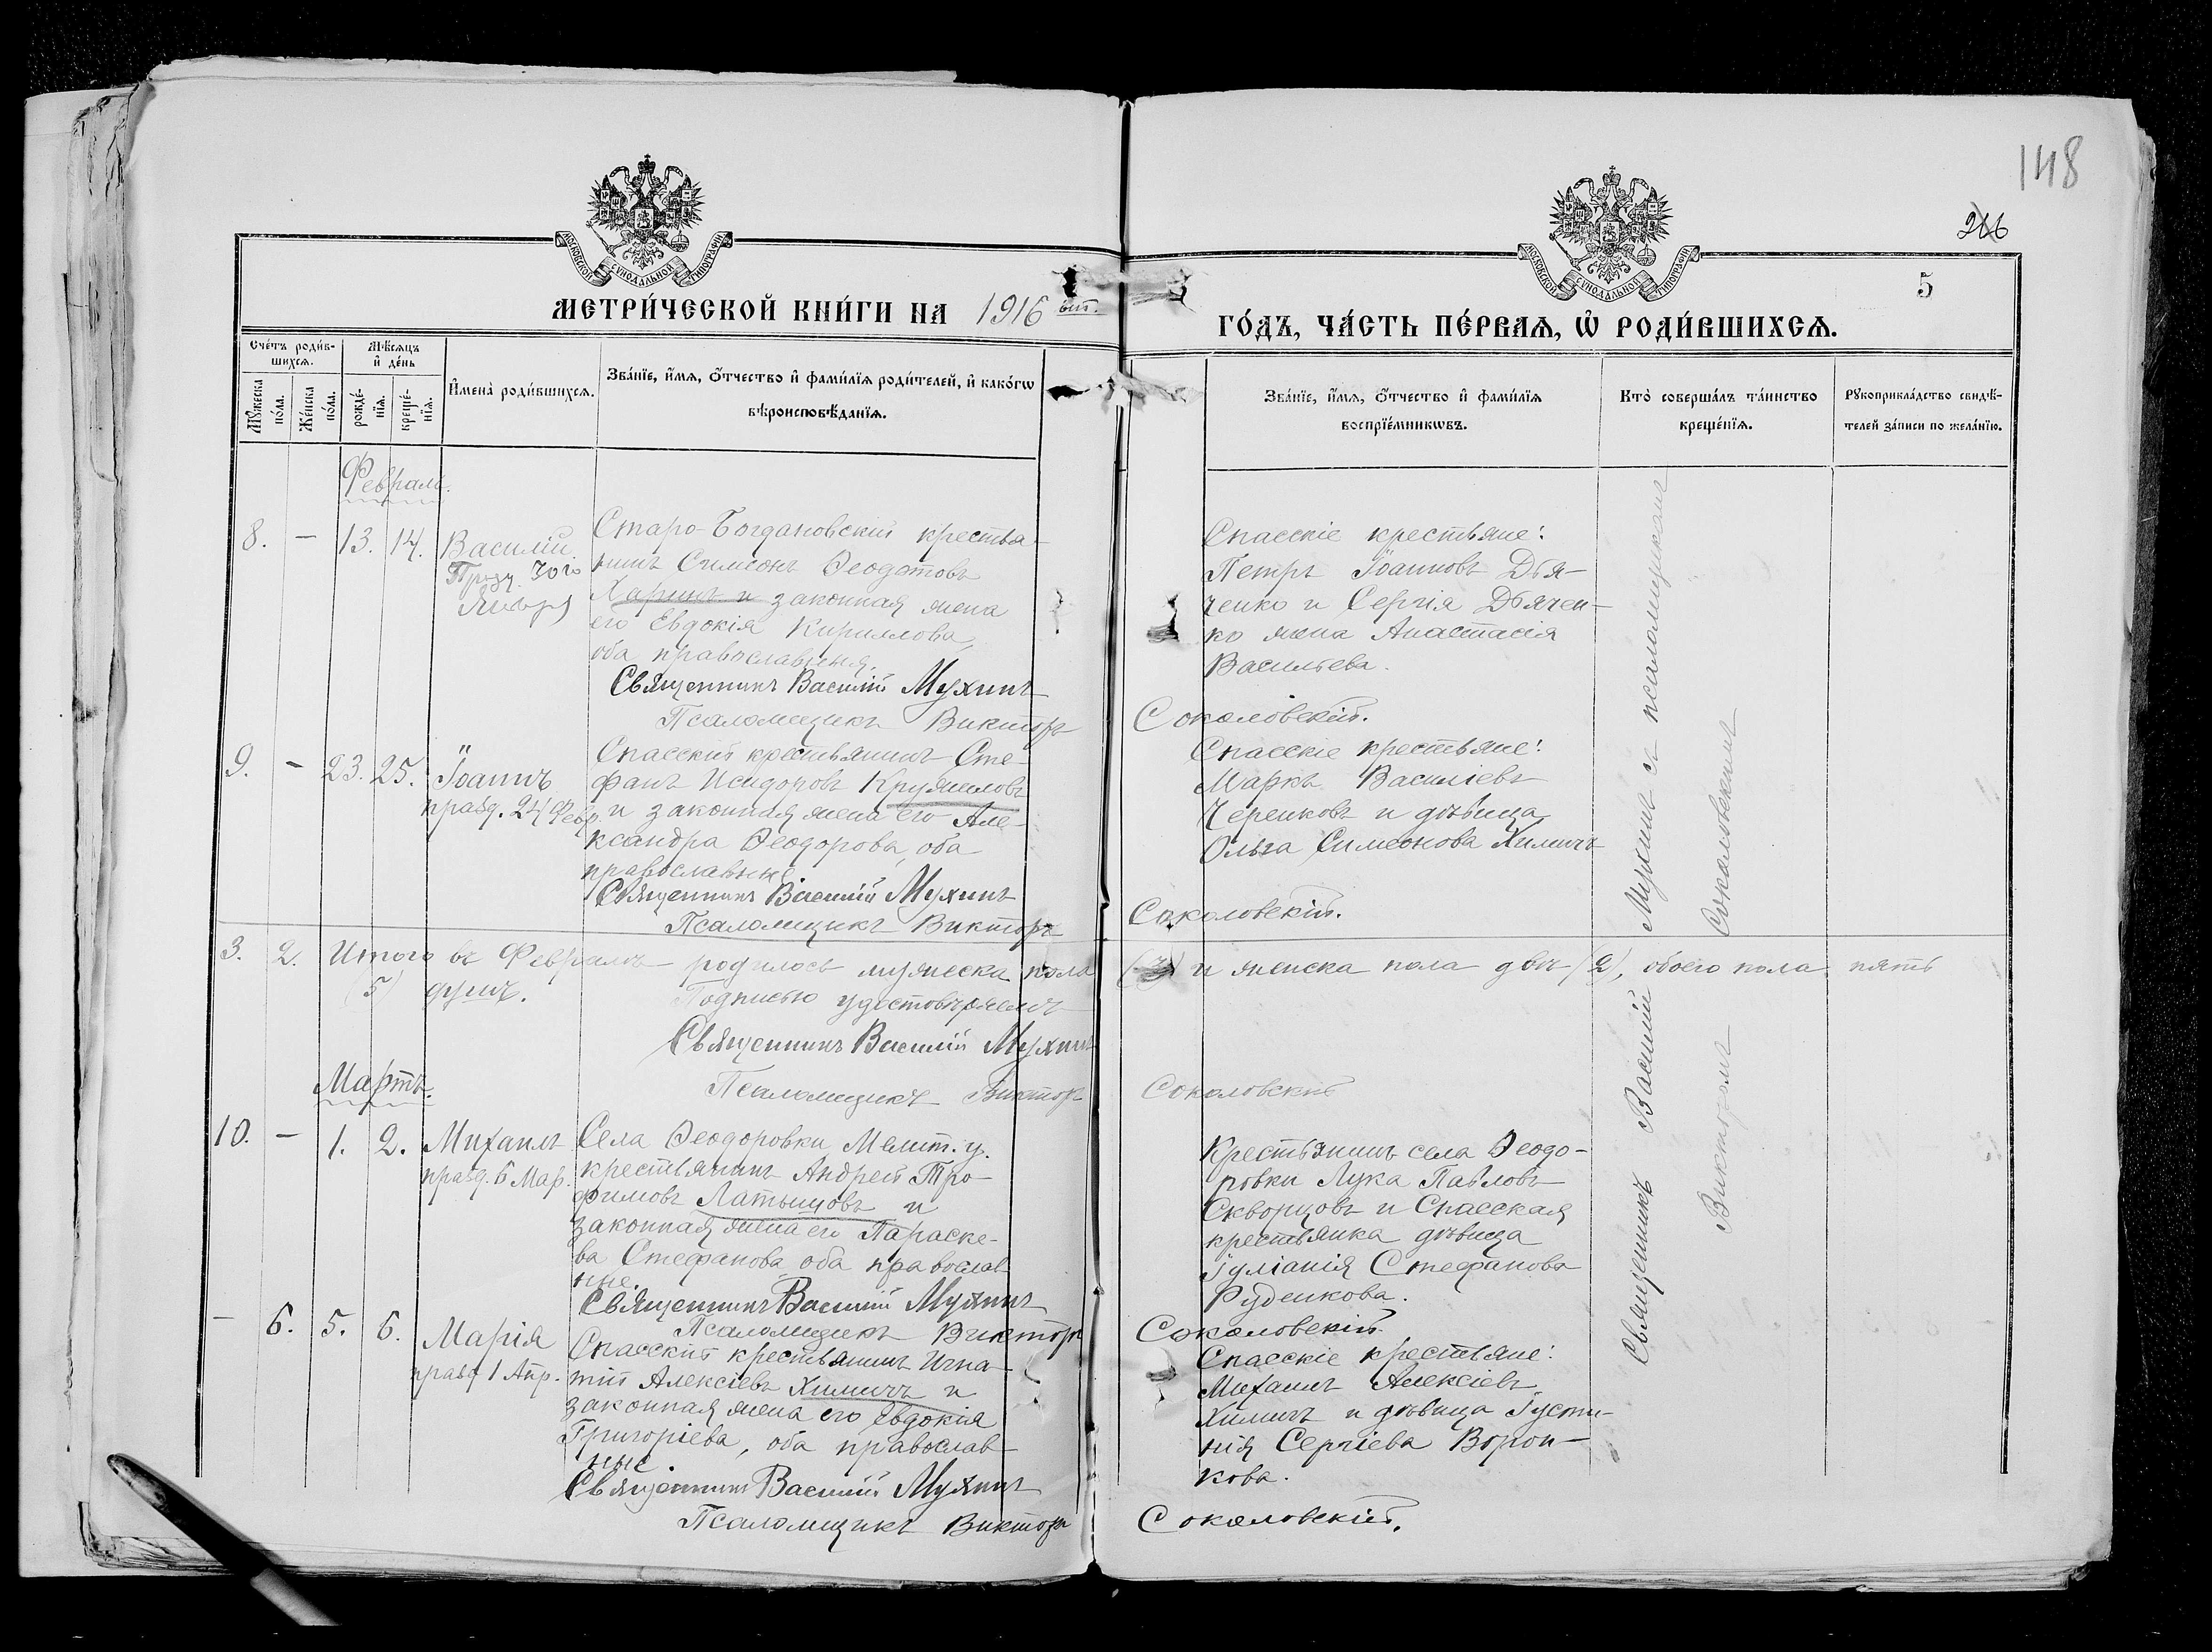 148
216
5
МОСКОВСКОЙ СѴНОДАЛЬНОЙ ТИПОГРАФІИ
МОСКОВСКОЙ СѴНОДАЛЬНОЙ ТИПОГРАФІИ
МЕТРИ́ЧЕСКОЙ КНИ́ГИ НА 1916
ГО́ДЪ, ЧА́СТЬ ПЕ́РВАѦ, Ѡ҆ РОДИ́ВШИХСѦ.
Сче́тъ роди́в-
шихсѧ.
Мѣ́сѧцъ
и҆ де́нь
Мꙋ́жеска
по́ла.
Же́нска
по́ла.
рожде́-
нїѧ.
креще́-
нїѧ.
И҆мена̀ роди́вшихсѧ.
Зва́нїе, и҆́мѧ, о҆́тчество и҆ фами́лїѧ роди́телей, и҆ како́гѡ
вѣроисповѣ́данїѧ.
Зва́нїе, и҆́мѧ, о҆́тчество и҆ фами́лїѧ
воспрїе́мникѡвъ.
Кто̀ соверша́лъ та́инство
креще́нїѧ.
Рꙋкоприкла́дство свидѣ́-
телей за́писи по жела́нїю.
Февраль.
8. — 13. 14. Василій
Празд. 30го
Январ
Старо-Богдановскій крестья-
нинъ Симеонъ Ѳеодотовъ
Харинъ и законная жена
его Евдокія Кириллова,
оба православныя.
Священникъ Василій Мухинъ
Псаломщикъ Викторъ Соколовскій.
Спасскіе крестьяне:
Петръ Іоанновъ Дья-
ченко и Сергія Дьячен-
ко жена Анастасія
Васильева.
9. — 23. 25. Іоаннъ
празд. 24 Февр.
Спасскій крестьянинъ Сте-
фанъ Исидоровъ Кружиловъ
и законная жена его Але-
ксандра Ѳеодорова, оба
православные
Священникъ Василій Мухинъ
Псаломщикъ Викторъ Соколовскій.
Спасскіе крестьяне:
Маркъ Василіевъ
Черенковъ и дѣвица
Ольга Симеонова Химичъ
3. 2. Итого въ Февралѣ родилось мужеска пола (3) и женска пола двѣ (2), обоего пола пять
(5) душъ.
Подписью удостовѣряемъ
Священникъ Василій Мухинъ
Псаломщикъ Викторъ Соколовскій
Мартъ.
10. — 1. 2. Михаилъ
празд. 6 Мар.
Села Ѳеодоровки Мелит. у.
крестьянинъ Андрей Тро-
фимовъ Латышовъ и
законная жена его Параске-
ва Стефанова оба православ-
ные.
Священникъ Василій Мухинъ
Псаломщикъ Викторъ Соколовскій
Крестьянинъ села Ѳеодо-
ровки Лука Павловъ
Скворцовъ и Спасская
крестьянка дѣвица
Іуліанія Стефанова
Руденкова.
— 6. 5. 6. Марія
празд 1 Апр.
Спасскій крестьянинъ Игна-
тій Алексіевъ Химичъ и
законная жена его Евдокія
Григоріева, оба православ-
ные.
Священникъ Василій Мухинъ
Псаломщикъ Викторъ Соколовскій.
Спасскіе крестьяне:
Михаилъ Алексіевъ
Химичъ и дѣвица Іусти-
нія Сергіева Ворон-
кова.
Священникъ Василій Мухинъ съ псаломщикомъ
Викторомъ Соколовскимъ